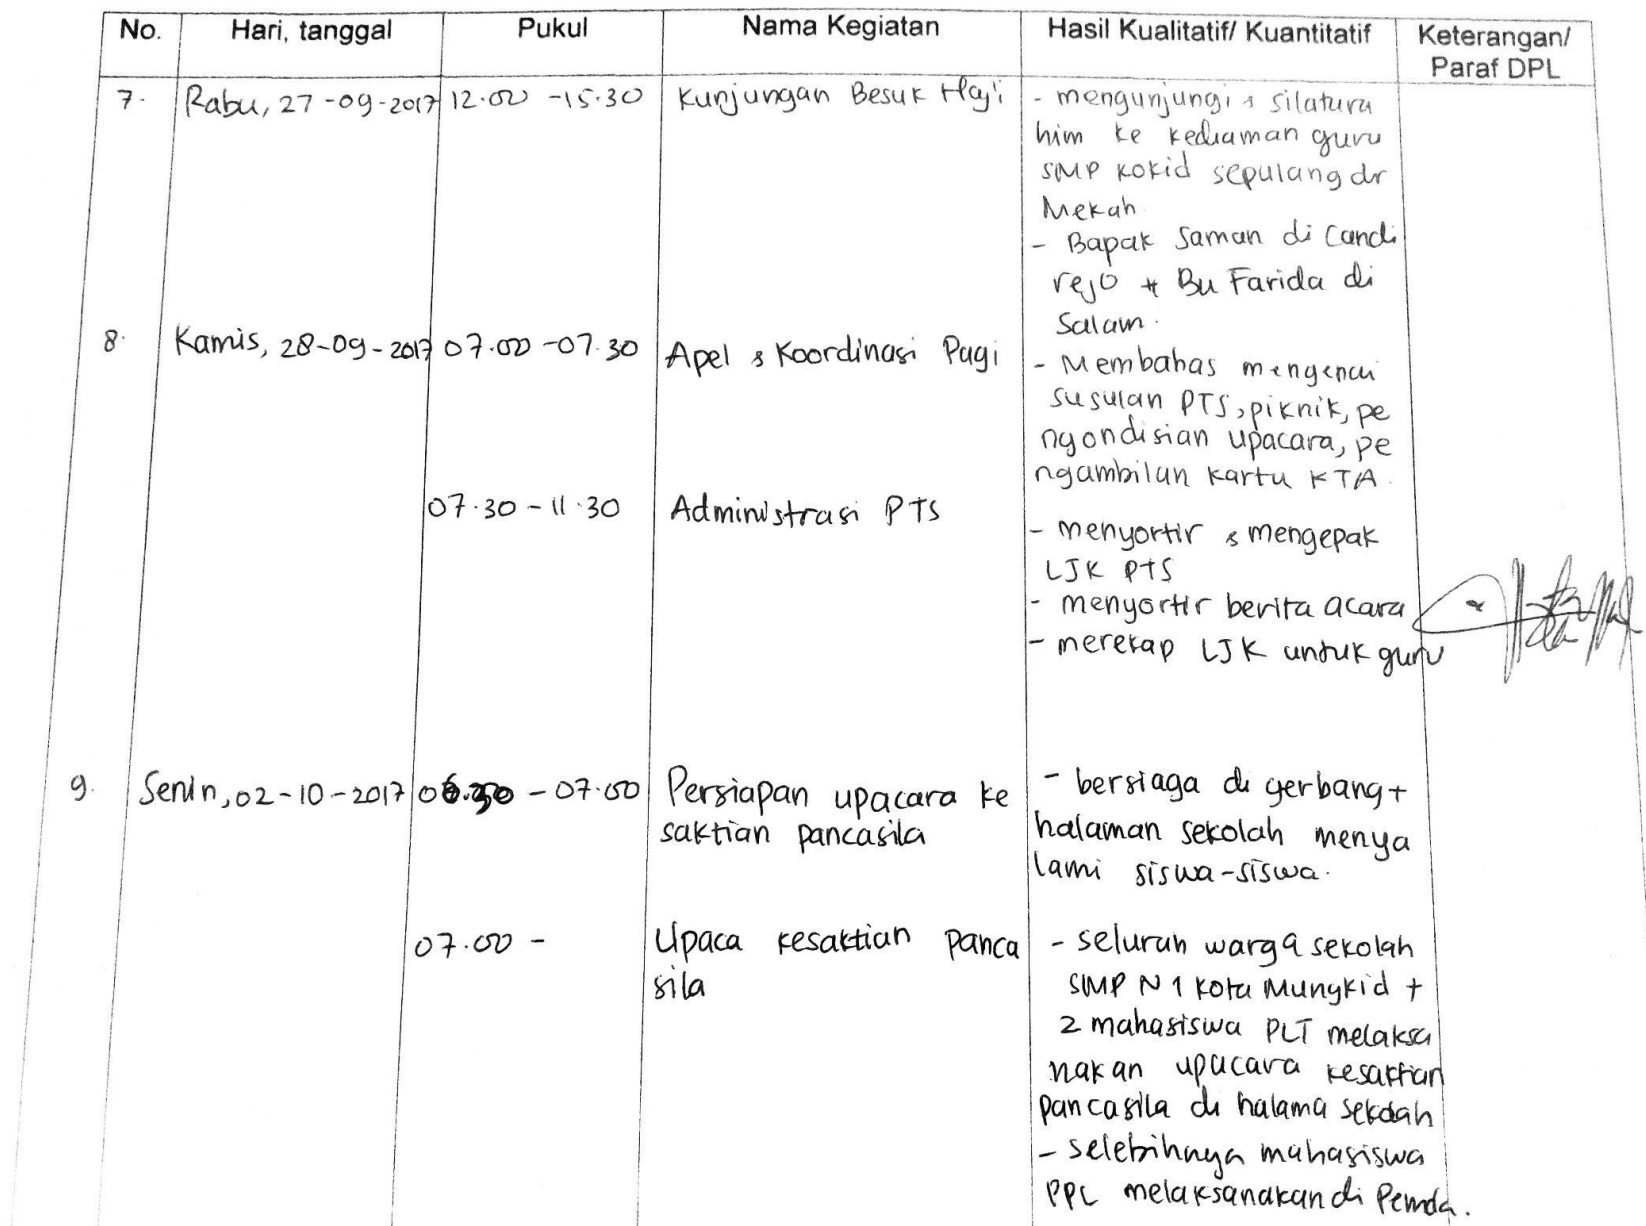 No. Hari, tanggal Pukul Nama Kegiatan Hasil Kualitatif/ Kuantitatif Keterangan/
Paraf DPL
7. Rabu, 27-09-2017 12.00 - 15.30 Kunjungan Besuk Haji - mengunjungi & silatura
him ke kediaman guru
SMP kokid sepulang dr
Mekah.
- Bapak Saman di Candi
rejo + Bu Farida di
Salam.
8. Kamis, 28-09-2017 07.00 - 07.30 Apel & Koordinasi Pagi - Membahas mengenai
susulan PTS, piknik, pe
ngondisian upacara, pe
ngambilan kartu KTA.
07.30 - 11.30 Administrasi PTS - menyortir & mengepak
LJK PTS
- menyortir berita acara
- merekap LJK untuk guru
9. Senin, 02-10-2017 - 07.00 Persiapan upacara ke - bersiaga di gerbang +
saktian pancasila halaman sekolah menya
lami siswa-siswa.
07.00 - Upaca kesaktian panca - seluruh warga sekolah
sila SMP N 1 Kota Mungkid +
2 mahasiswa PLT melaksa
nakan upacara kesaktian
pancasila di halama sekolah
- selebihnya mahasiswa
PPL melaksanakan di Pemda.